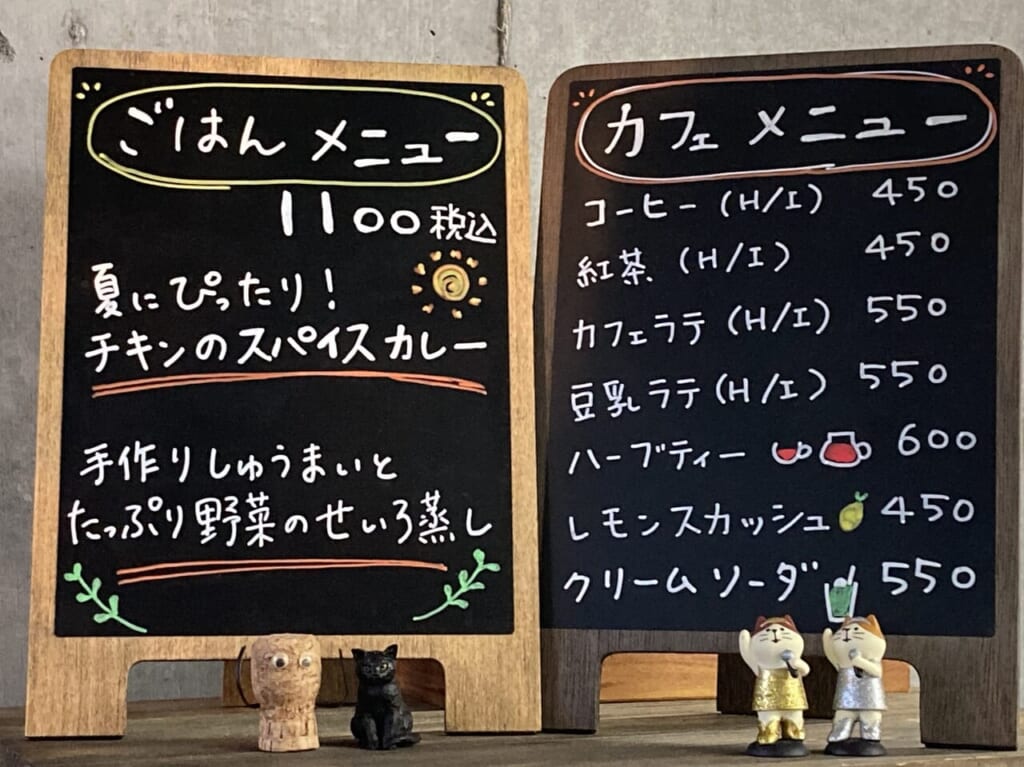 ごはん メニュー
1100 税込
夏にぴったり!
チキンのスパイスカレー
手作りしゅうまいと
たっぷり野菜のせいろ蒸し
カフェ メニュー
コーヒー (H/I) 450
紅茶 (H/I) 450
カフェラテ (H/I) 550
豆乳ラテ (H/I) 550
ハーブティー 600
レモンスカッシュ 450
クリームソーダ 550